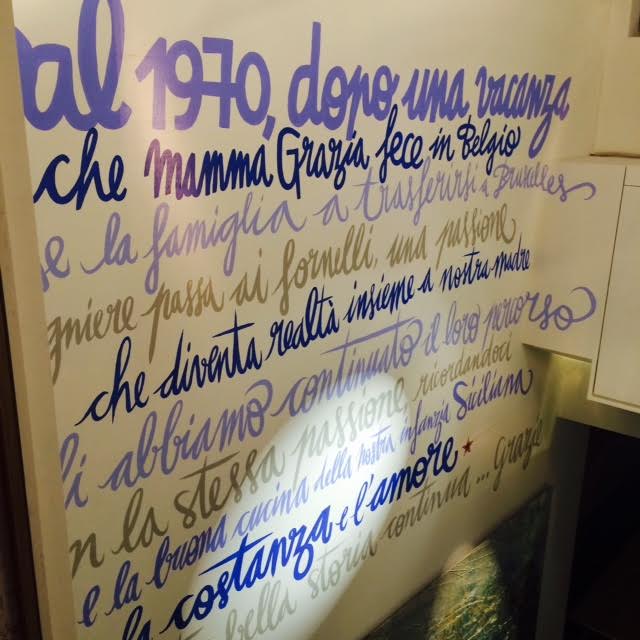 al 1970, dopo una vacanza
che mamma Grazia fece in Belgio
e la famiglia a trasferirsi a Bruxelles
gniere passa ai fornelli, una passione
che diventa realtà insieme a nostra madre
li abbiamo continuato il loro percorso
n la stessa passione, ricordandoci
e la buona cucina della nostra infanzia Siciliana
la costanza e l'amore
bella storia continua ... grazie